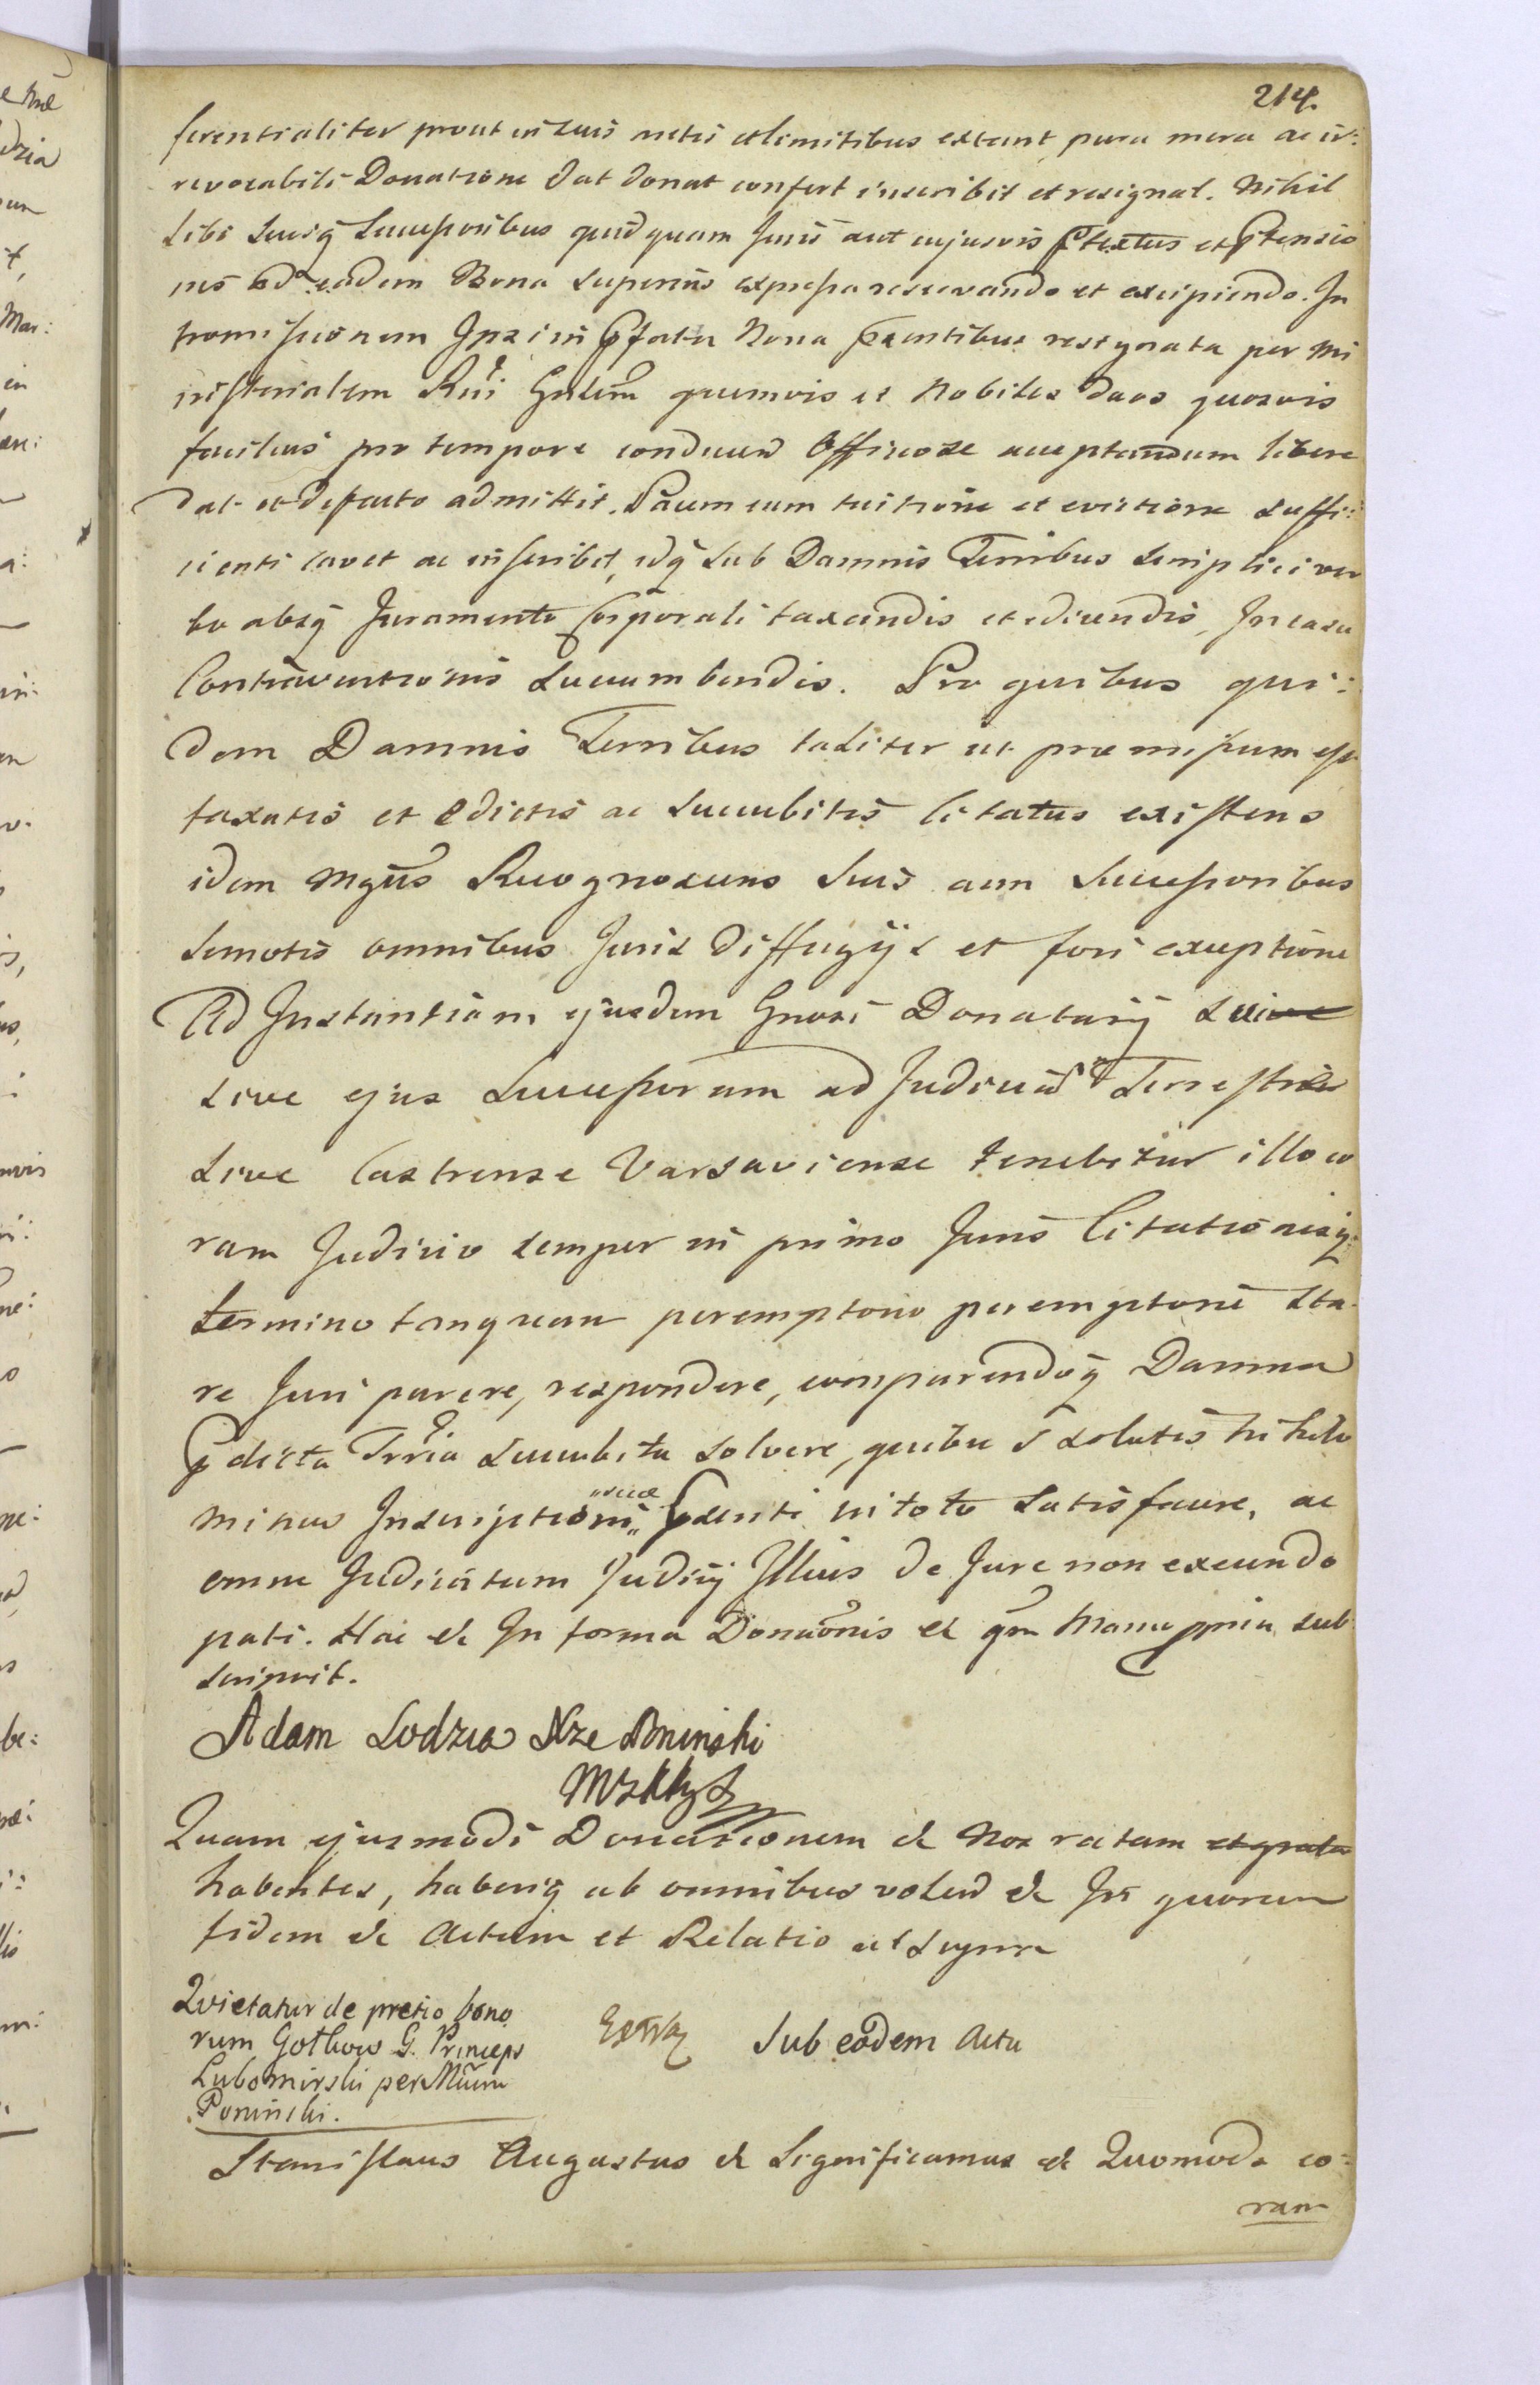 214.
ferentialiter prout in suis metis et limitibus extant pura mera ac ir:
revocabili Donatione dat donat confert inscribit et resignat. Nihil
sibi suisq̃ Successoribus quidquam Juris aut cujusvis p̃textus et p̃tensio
nis ad eadem Bona superius expressa reservando et excipiendo. In
tromissionem Ipsi in p̃fata Bona p̃sentibus resignata per Mi
nisterialem Rñi Gñlem quemvis et Nobiles duos quosvis
facilius pro tempore conducen Officiose acceptandum libere
dat et defacto admittit. Pacem cum tuitione et evictione suffi:
cienti cavet ac inscribit, idq̃ sub Damnis Terribus simplici ver
bo absq̃ Juramento Corporali taxandis et edicendis, In casu
Contraventionis succumbendis. Pro quibus qui:
dem Damnis Terribus taliter ut præmissum est
taxatis et edictis ac succubitis Citatus existens
idem Mgñs Recognoscens suis cum Successoribus
semotis omnibus Juris diffugijs et fori exceptione
Ad Instantiam ejusdem Gnosi Donatarij suive
sive ejus Successorum ad Judicia Terrestria
sive Castrense Varsaviense tenebitur illo co
ram Judicio semper in primo Juris Citationisq̃
termino tanquam peremptorio peremptorie sta
re Juri parere, respondere, comparendoq̃ Damna
p̃dicta Trria succubita solvere, quibus solutis nihilo
minus Inscriptioni suæ p̃senti in toto satisfacere, ac
omne Judicatum Judicij Illius de Jure non exeundo
pati. Hac &c In forma Donaõnis et q̃m Manu ppria sub
scripsit.
Adam Lodzia Xze Poninski
Quam ejusmodi Donationem &c Nos ratam et grata
habentes, haberiq̃ ab omnibus volen &c In quorum
fidem &c Actum et Relatio ut supra
Quietatur de pretio bono
rum Gotkow G. Princeps
Lubomirski per Mũm
Poninski.
Sub eodem Actu
Stanislaus Augustus &c Significamus &c Quomodo co:
ram